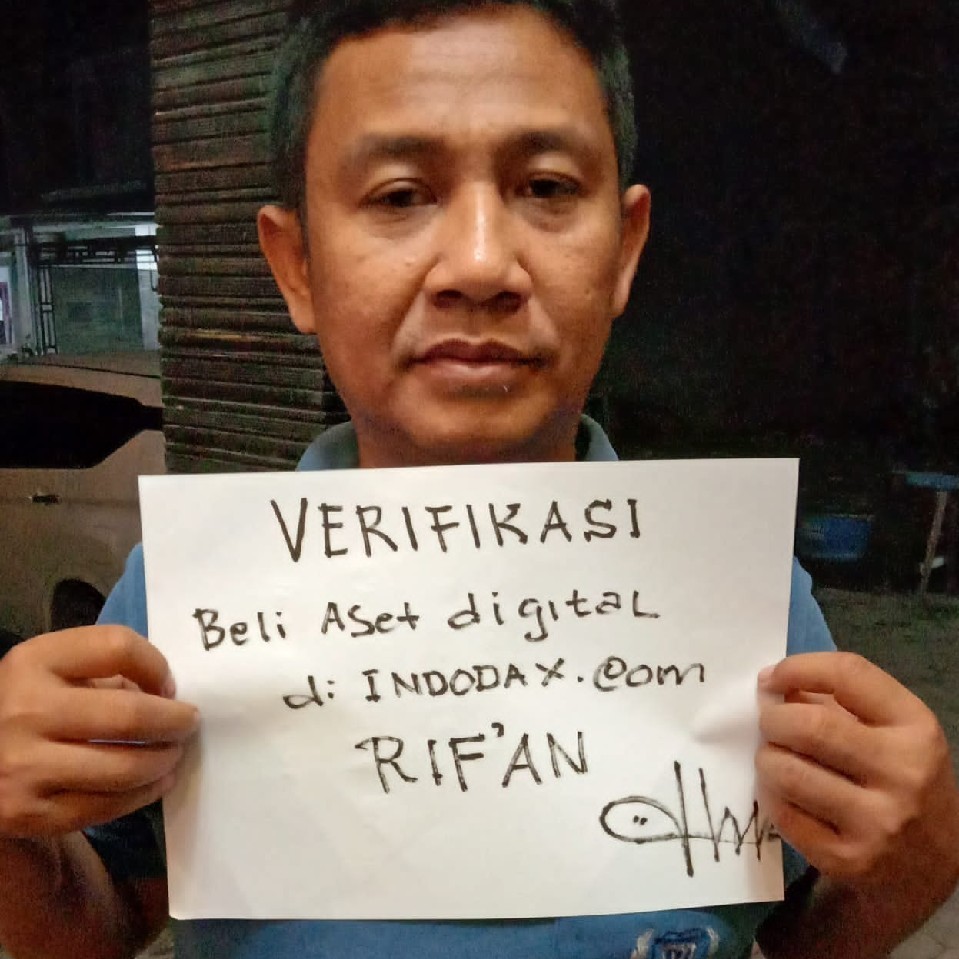 VERIFIKASI
Beli Aset digital
di INDODAX.com
RIF'AN